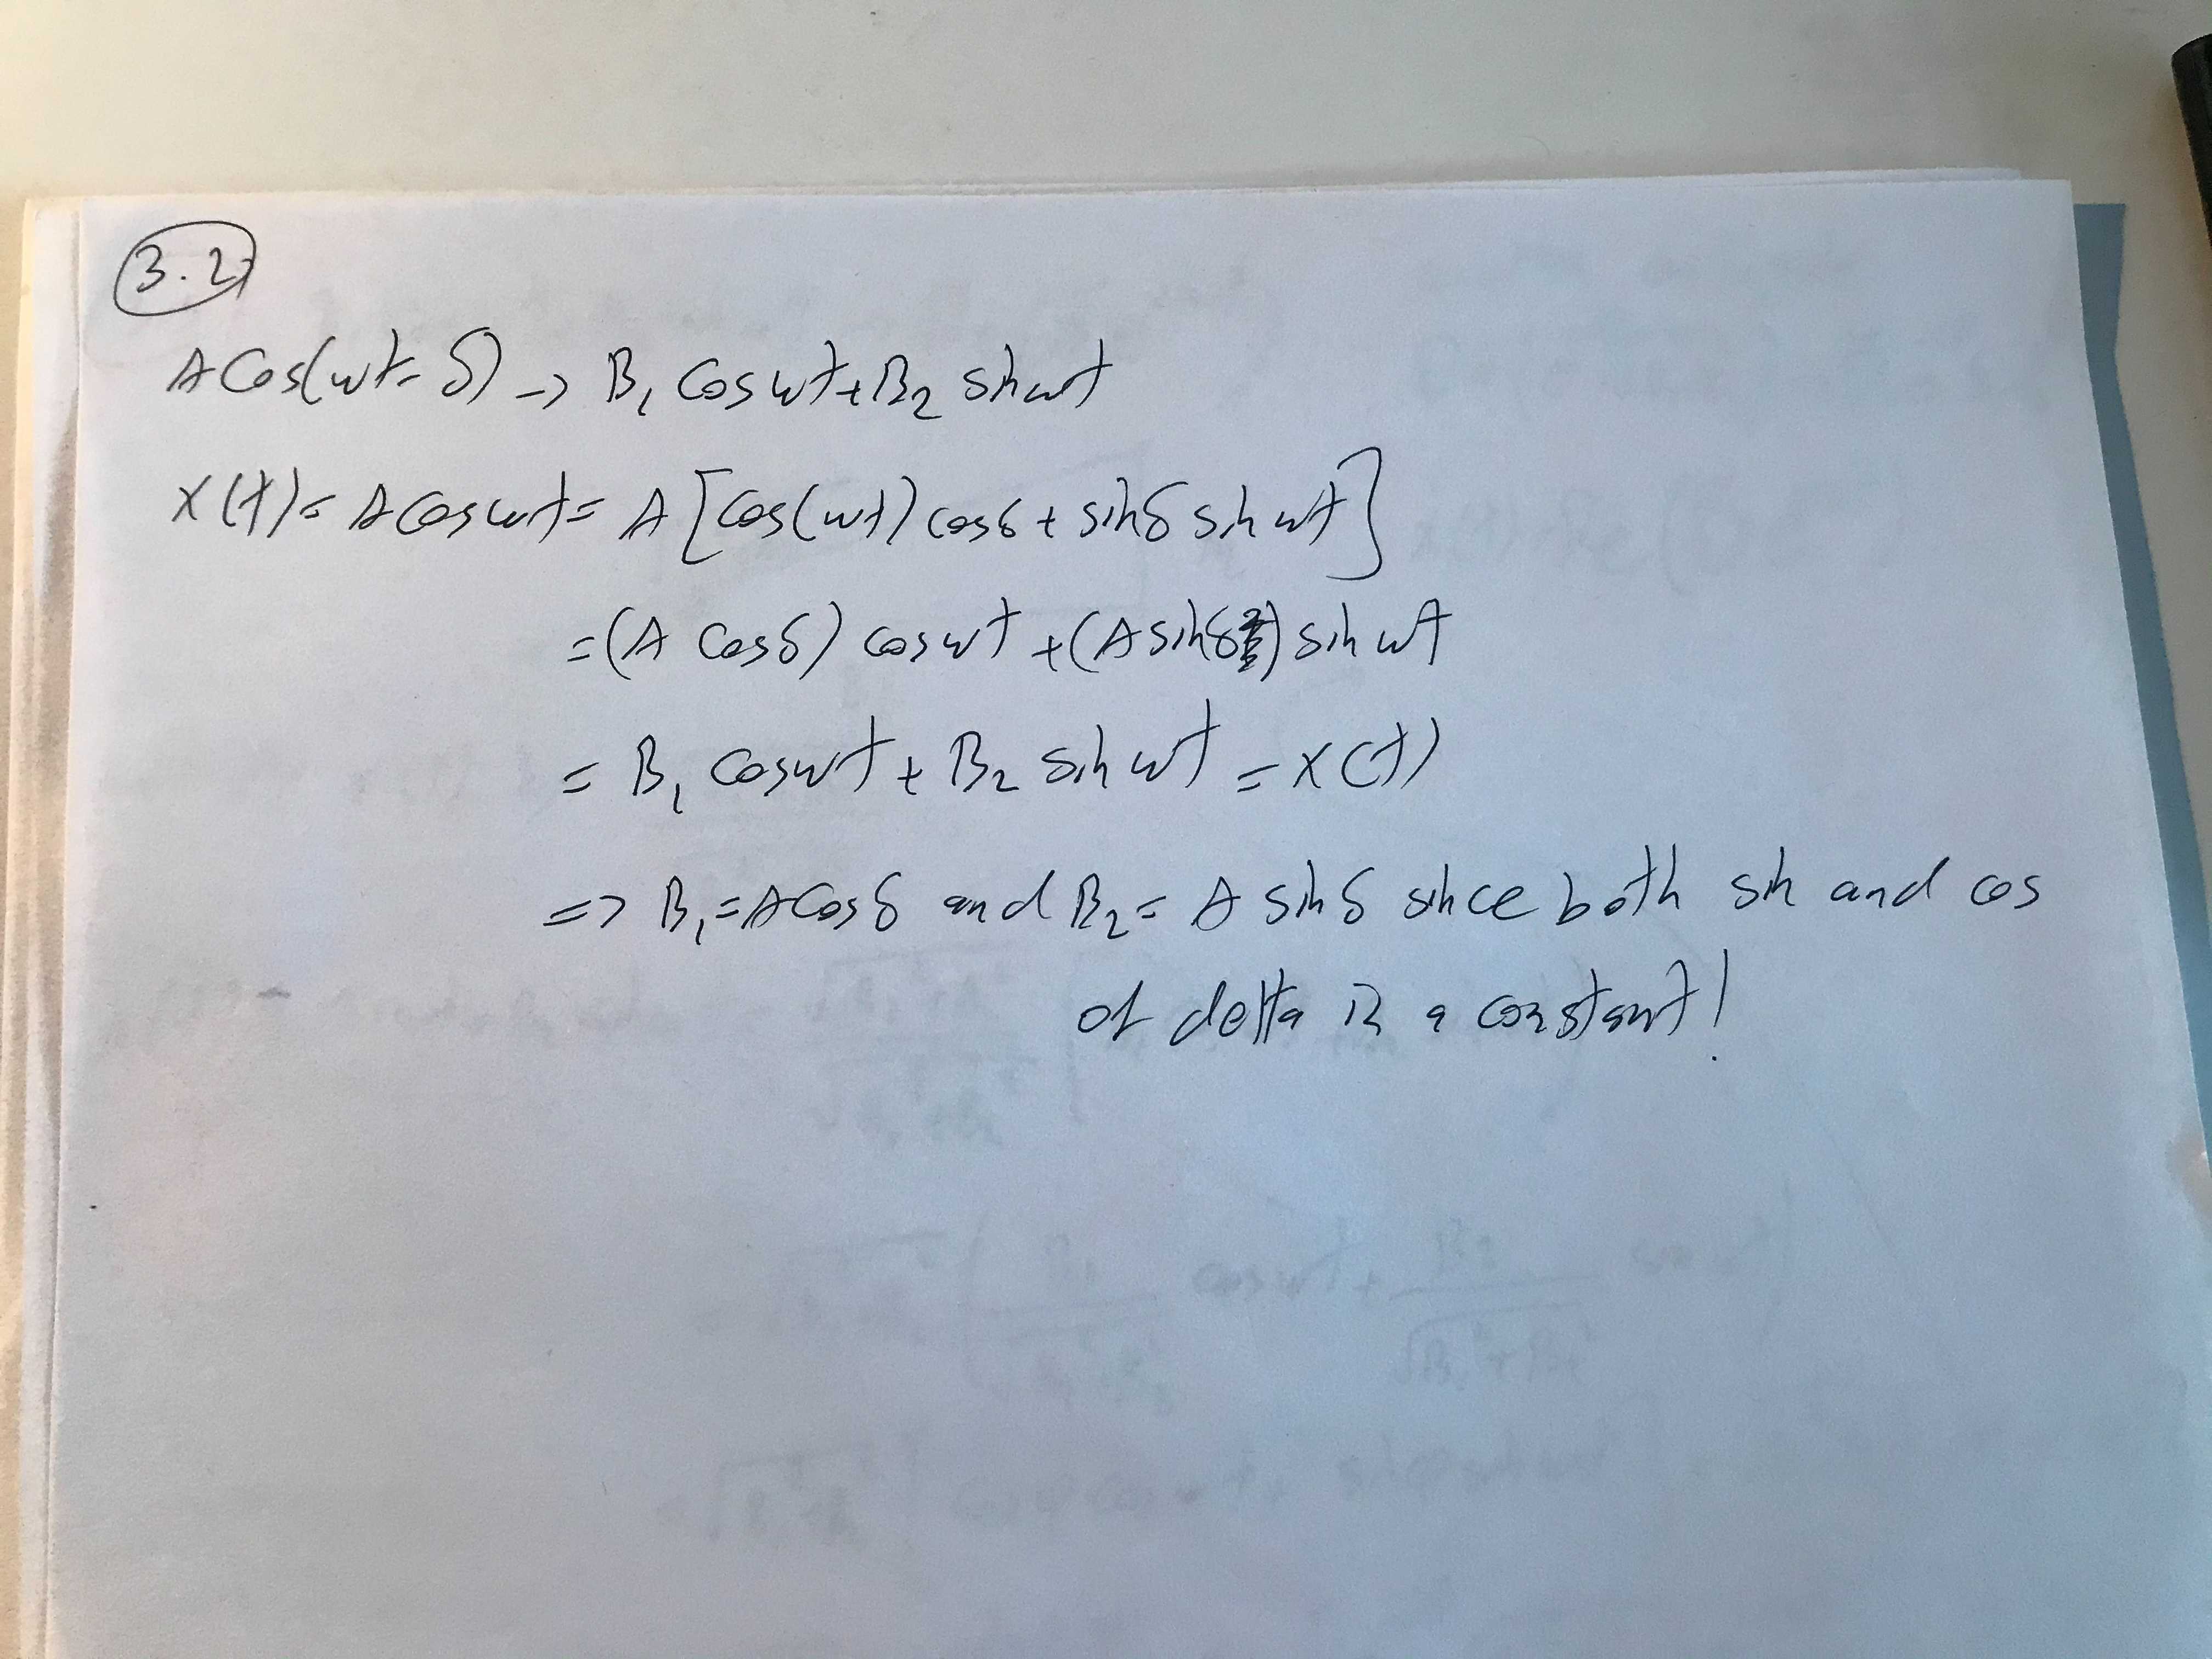 3.2
A Cos(ωt - δ) → B₁ Cos ωt + B₂ sin ωt
X(t) = A Cos ωt = A [Cos(ωt) cos δ + sin δ sin ωt]
= (A Cos δ) cos ωt + (A sin δ) sin ωt
= B₁ Cos ωt + B₂ sin ωt = X(t)
=> B₁ = A Cos δ and B₂ = A sin δ since both sin and cos
of delta is a constant!